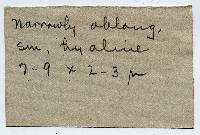 narrowly oblong,
sm, hyaline
7-9 x 2-3 µ